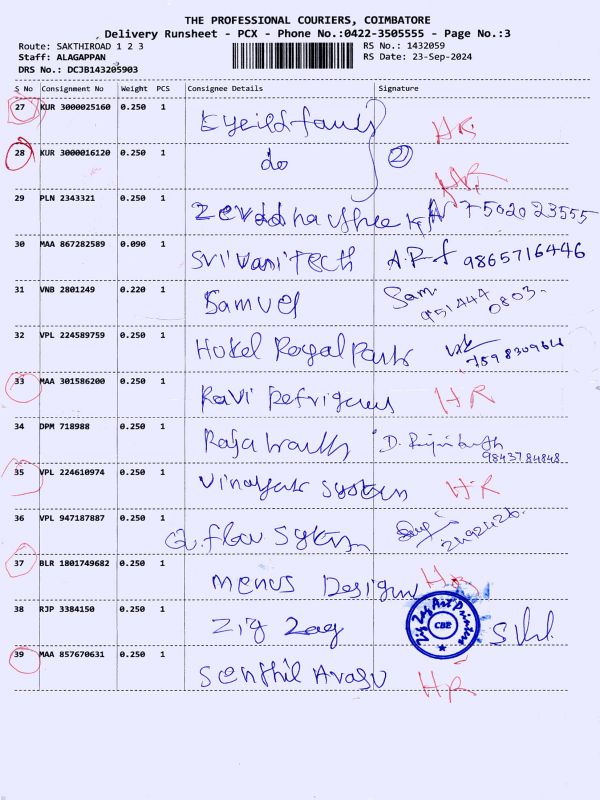 THE PROFESSIONAL COURIERS, COIMBATORE
Delivery Runsheet - PCX - Phone No.:0422-3505555 - Page No.:3
Route: SAKTHIROAD 1 2 3 RS No.: 1432059
Staff: ALAGAPPAN RS Date: 23-Sep-2024
DRS No.: DCJB143205903
S No Consignment No Weight PCS Consignee Details Signature
27 KUR 3000025160 0.250 1 HR
28 KUR 3000016120 0.250 1 do 2 HR
29 PLN 2343321 0.250 1 7502023555
30 MAA 867282589 0.090 1 Sri Vani Tech 9865716446
31 VNB 2801249 0.220 1 Samuel Sam
951444 0803.
32 VPL 224589759 0.250 1 Hotel Royal Park
33 MAA 301586200 0.250 1 Ravi HR
34 DPM 718988 0.250 1 D.
9843784848
35 VPL 224610974 0.250 1 HR
36 VPL 947187887 0.250 1
37 BLR 1801749682 0.250 1 Menus Design
38 RJP 3384150 0.250 1 Zig Zag Zig Zag Art Printers CBE
39 MAA 857670631 0.250 1 Senthil Arasu HR